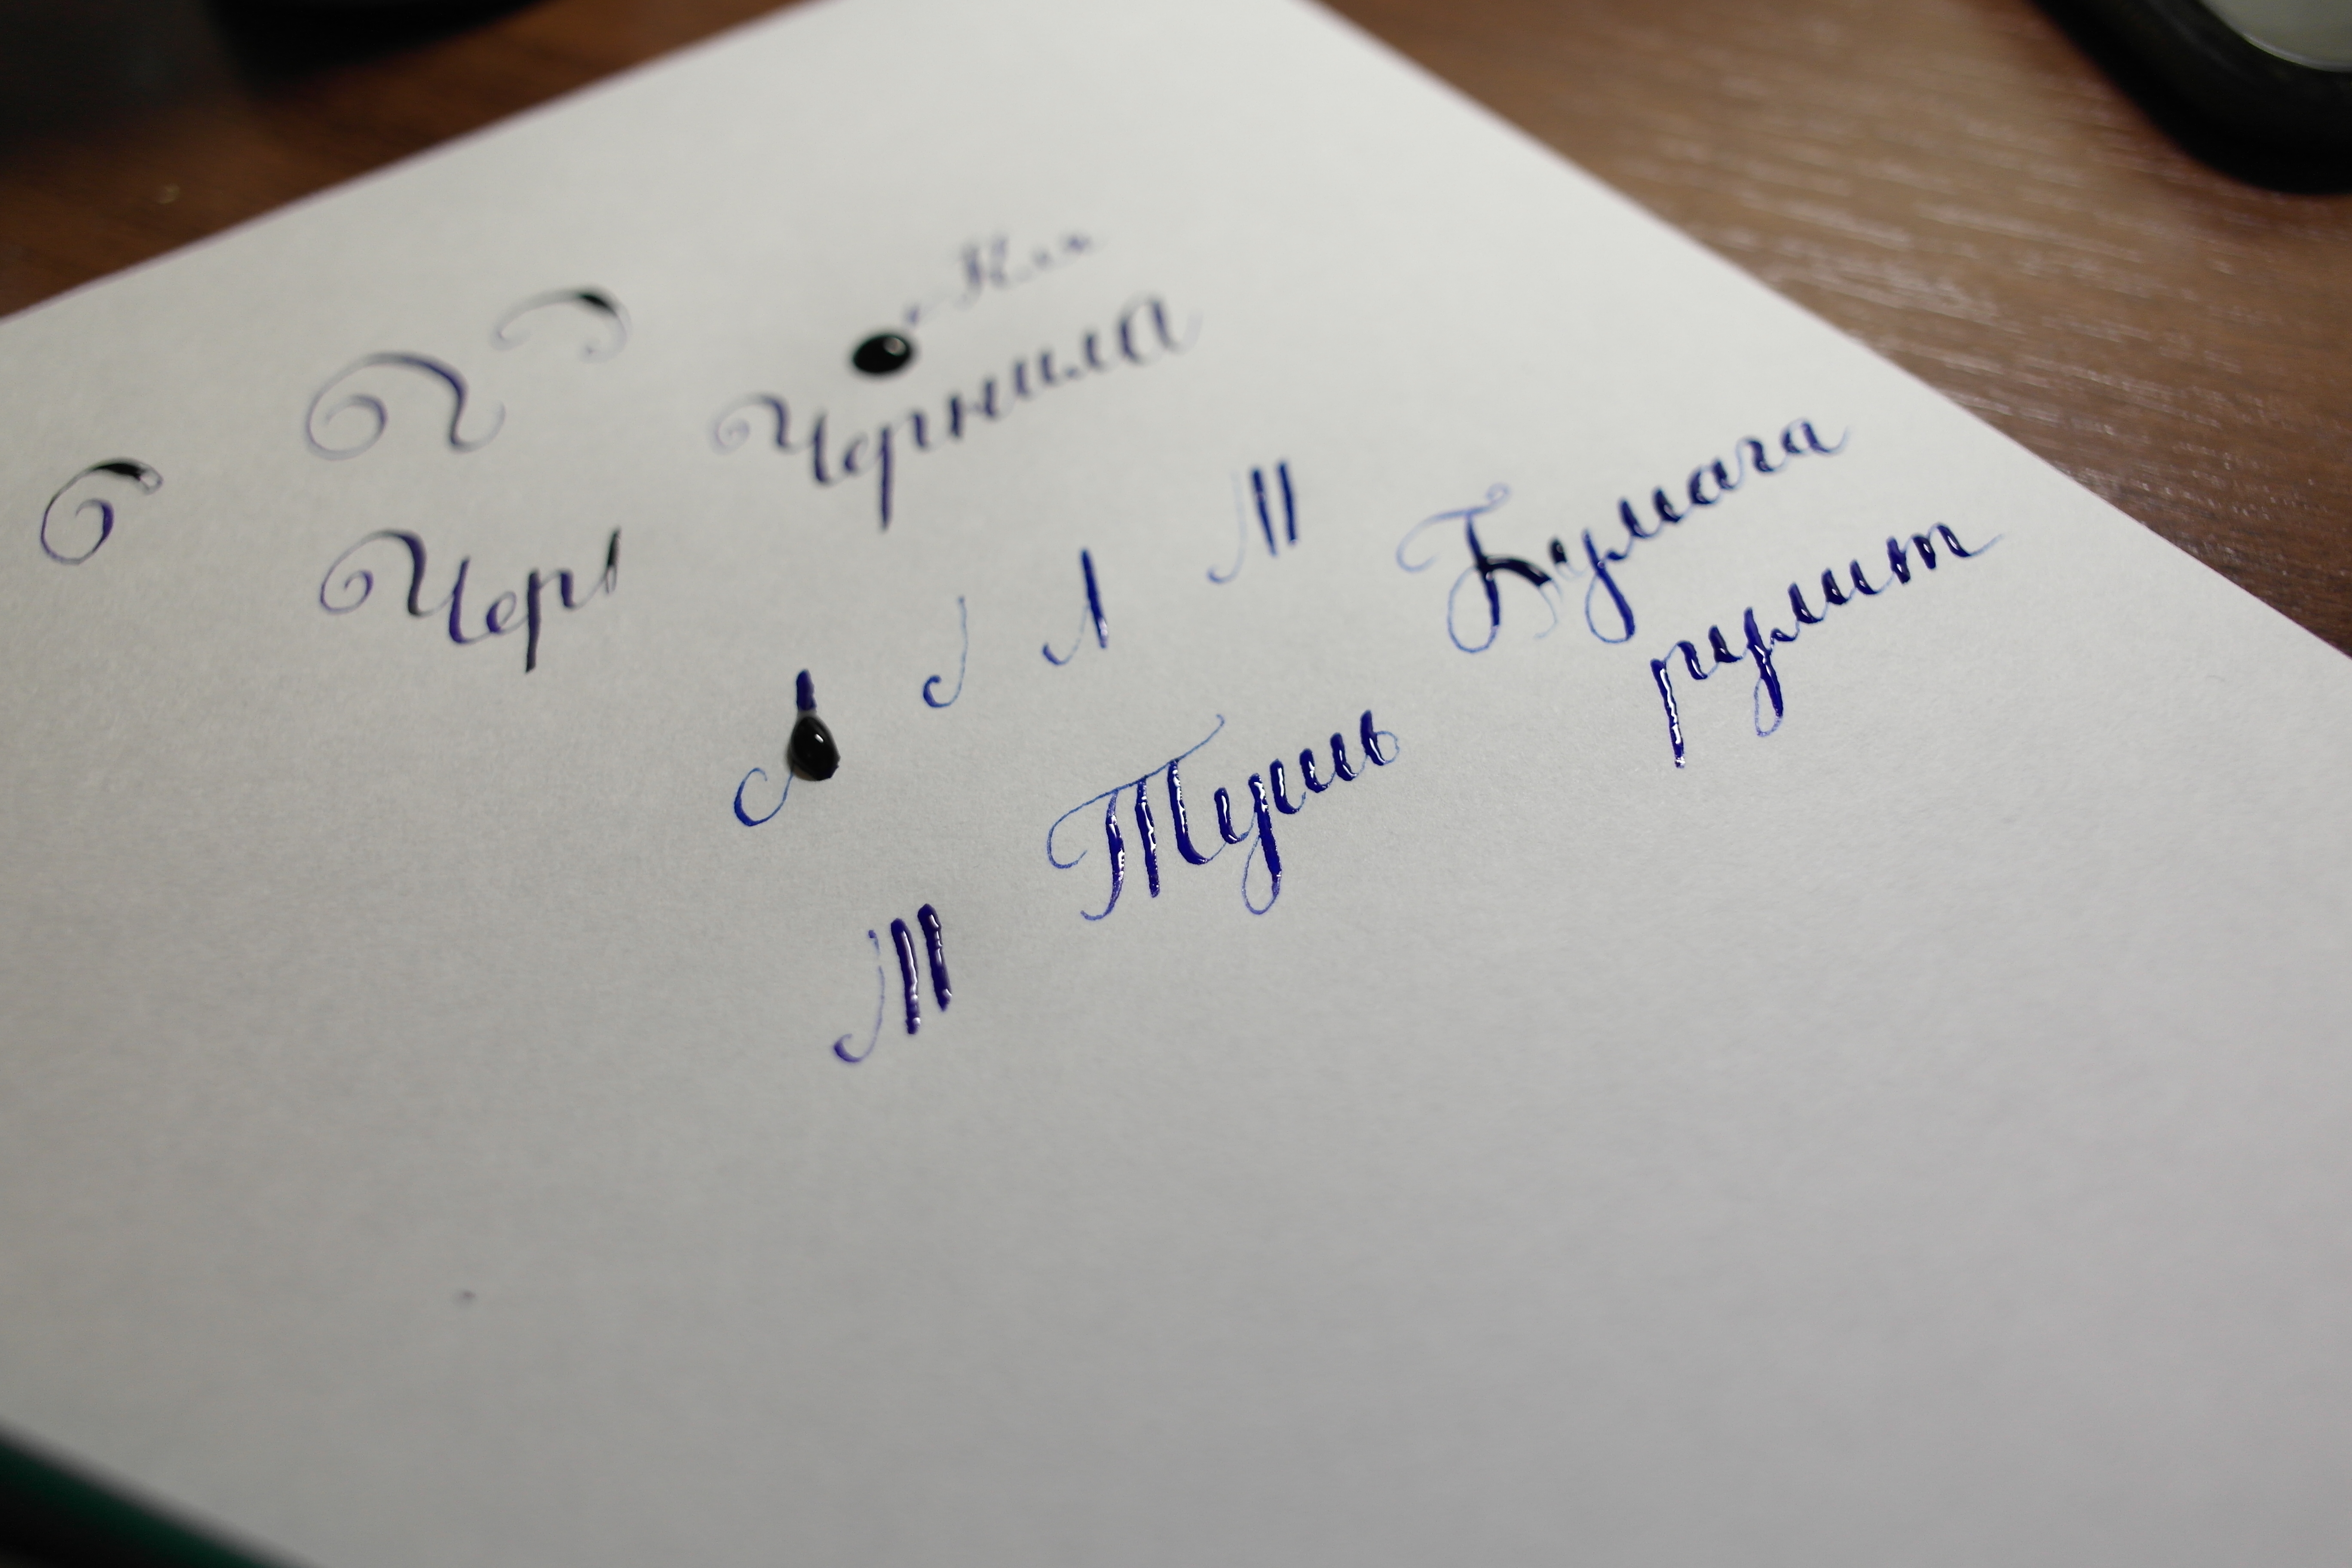 Чернила
Черн
Бумага
рулит
Тушь